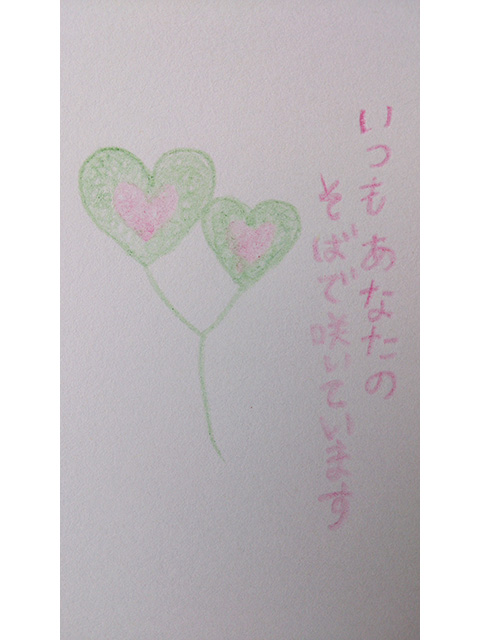 いつもあなたの
そばで咲いています